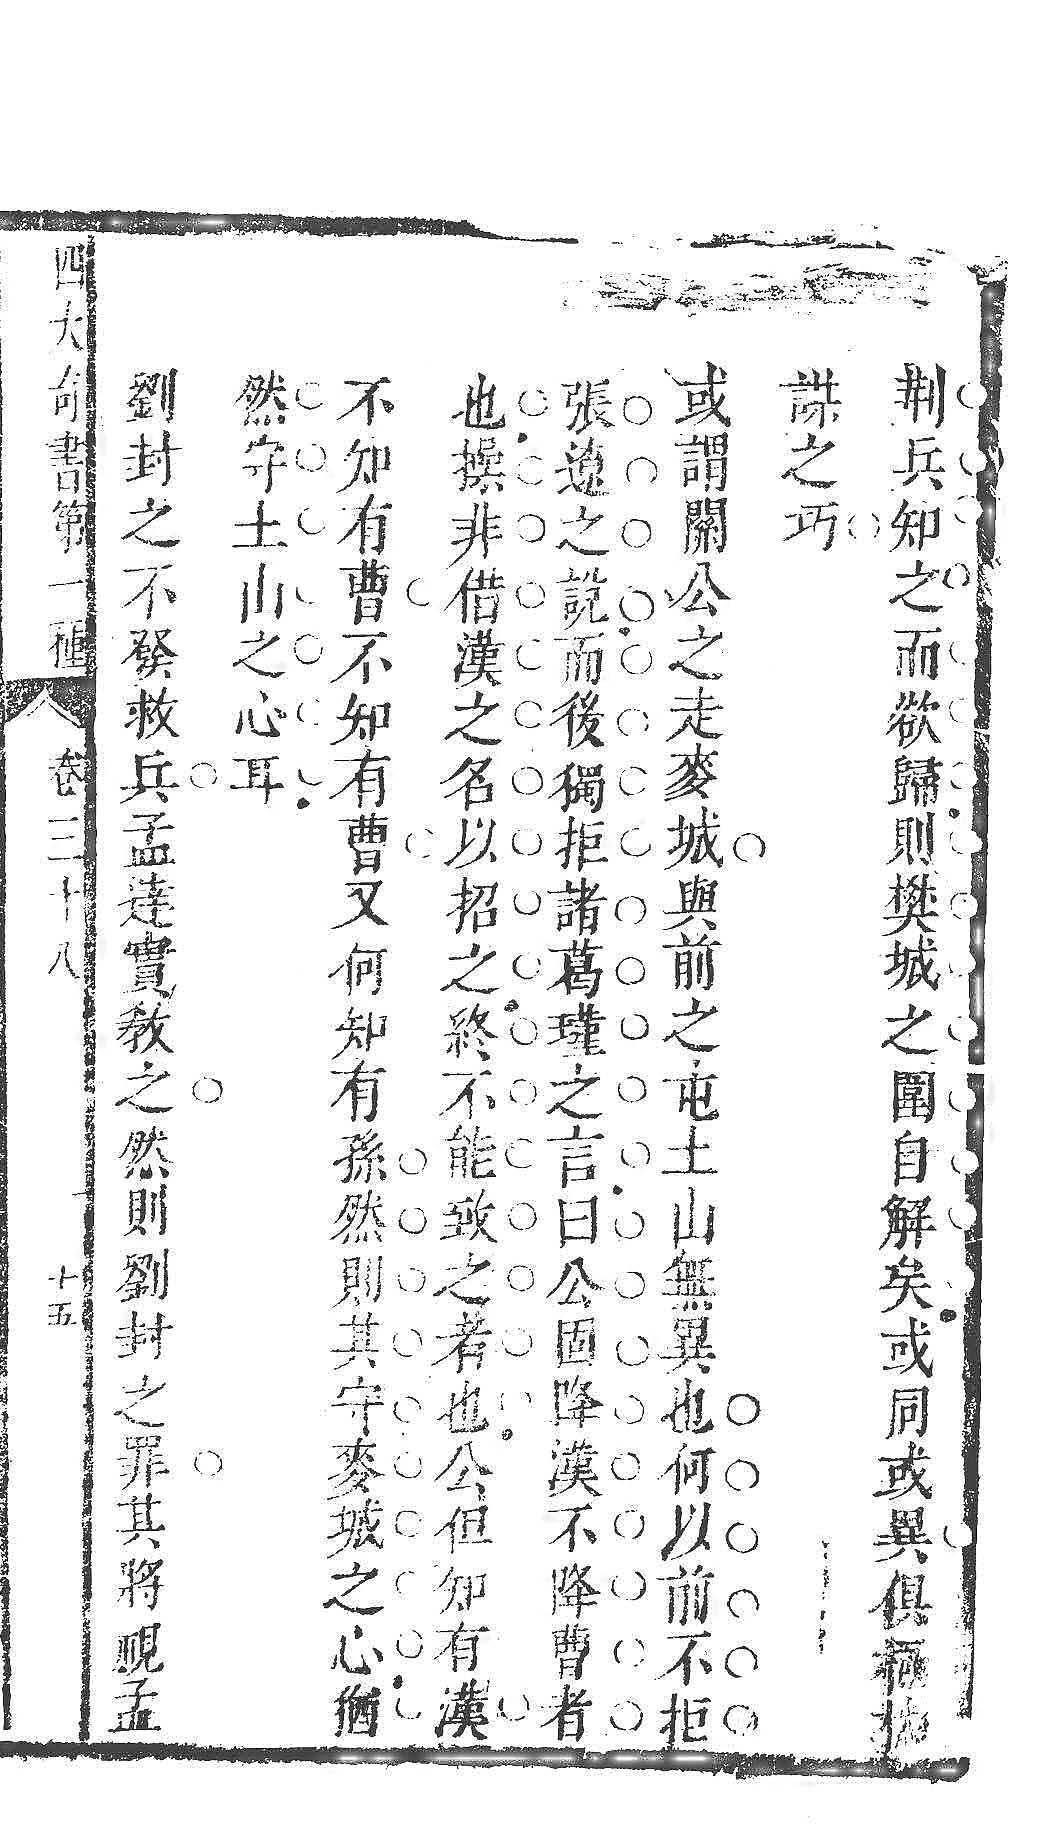 荆兵知之而欲歸則樊城之圍自解矣或同或異俱極
謀之巧
或謂關公之走麥城與前之屯土山無異也何以前不拒
張遼之說而後獨拒諸葛瑾之言曰公固降漢不降曹者
也操非借漢之名以招之終不能致之者也公但知有漢
不知有曹不知有曹又何知有孫然則其守麥城之心猶
然守土山之心耳
劉封之不發救兵孟達實教之然則劉封之罪其將視孟
四大奇書第一種 卷三十八 十五